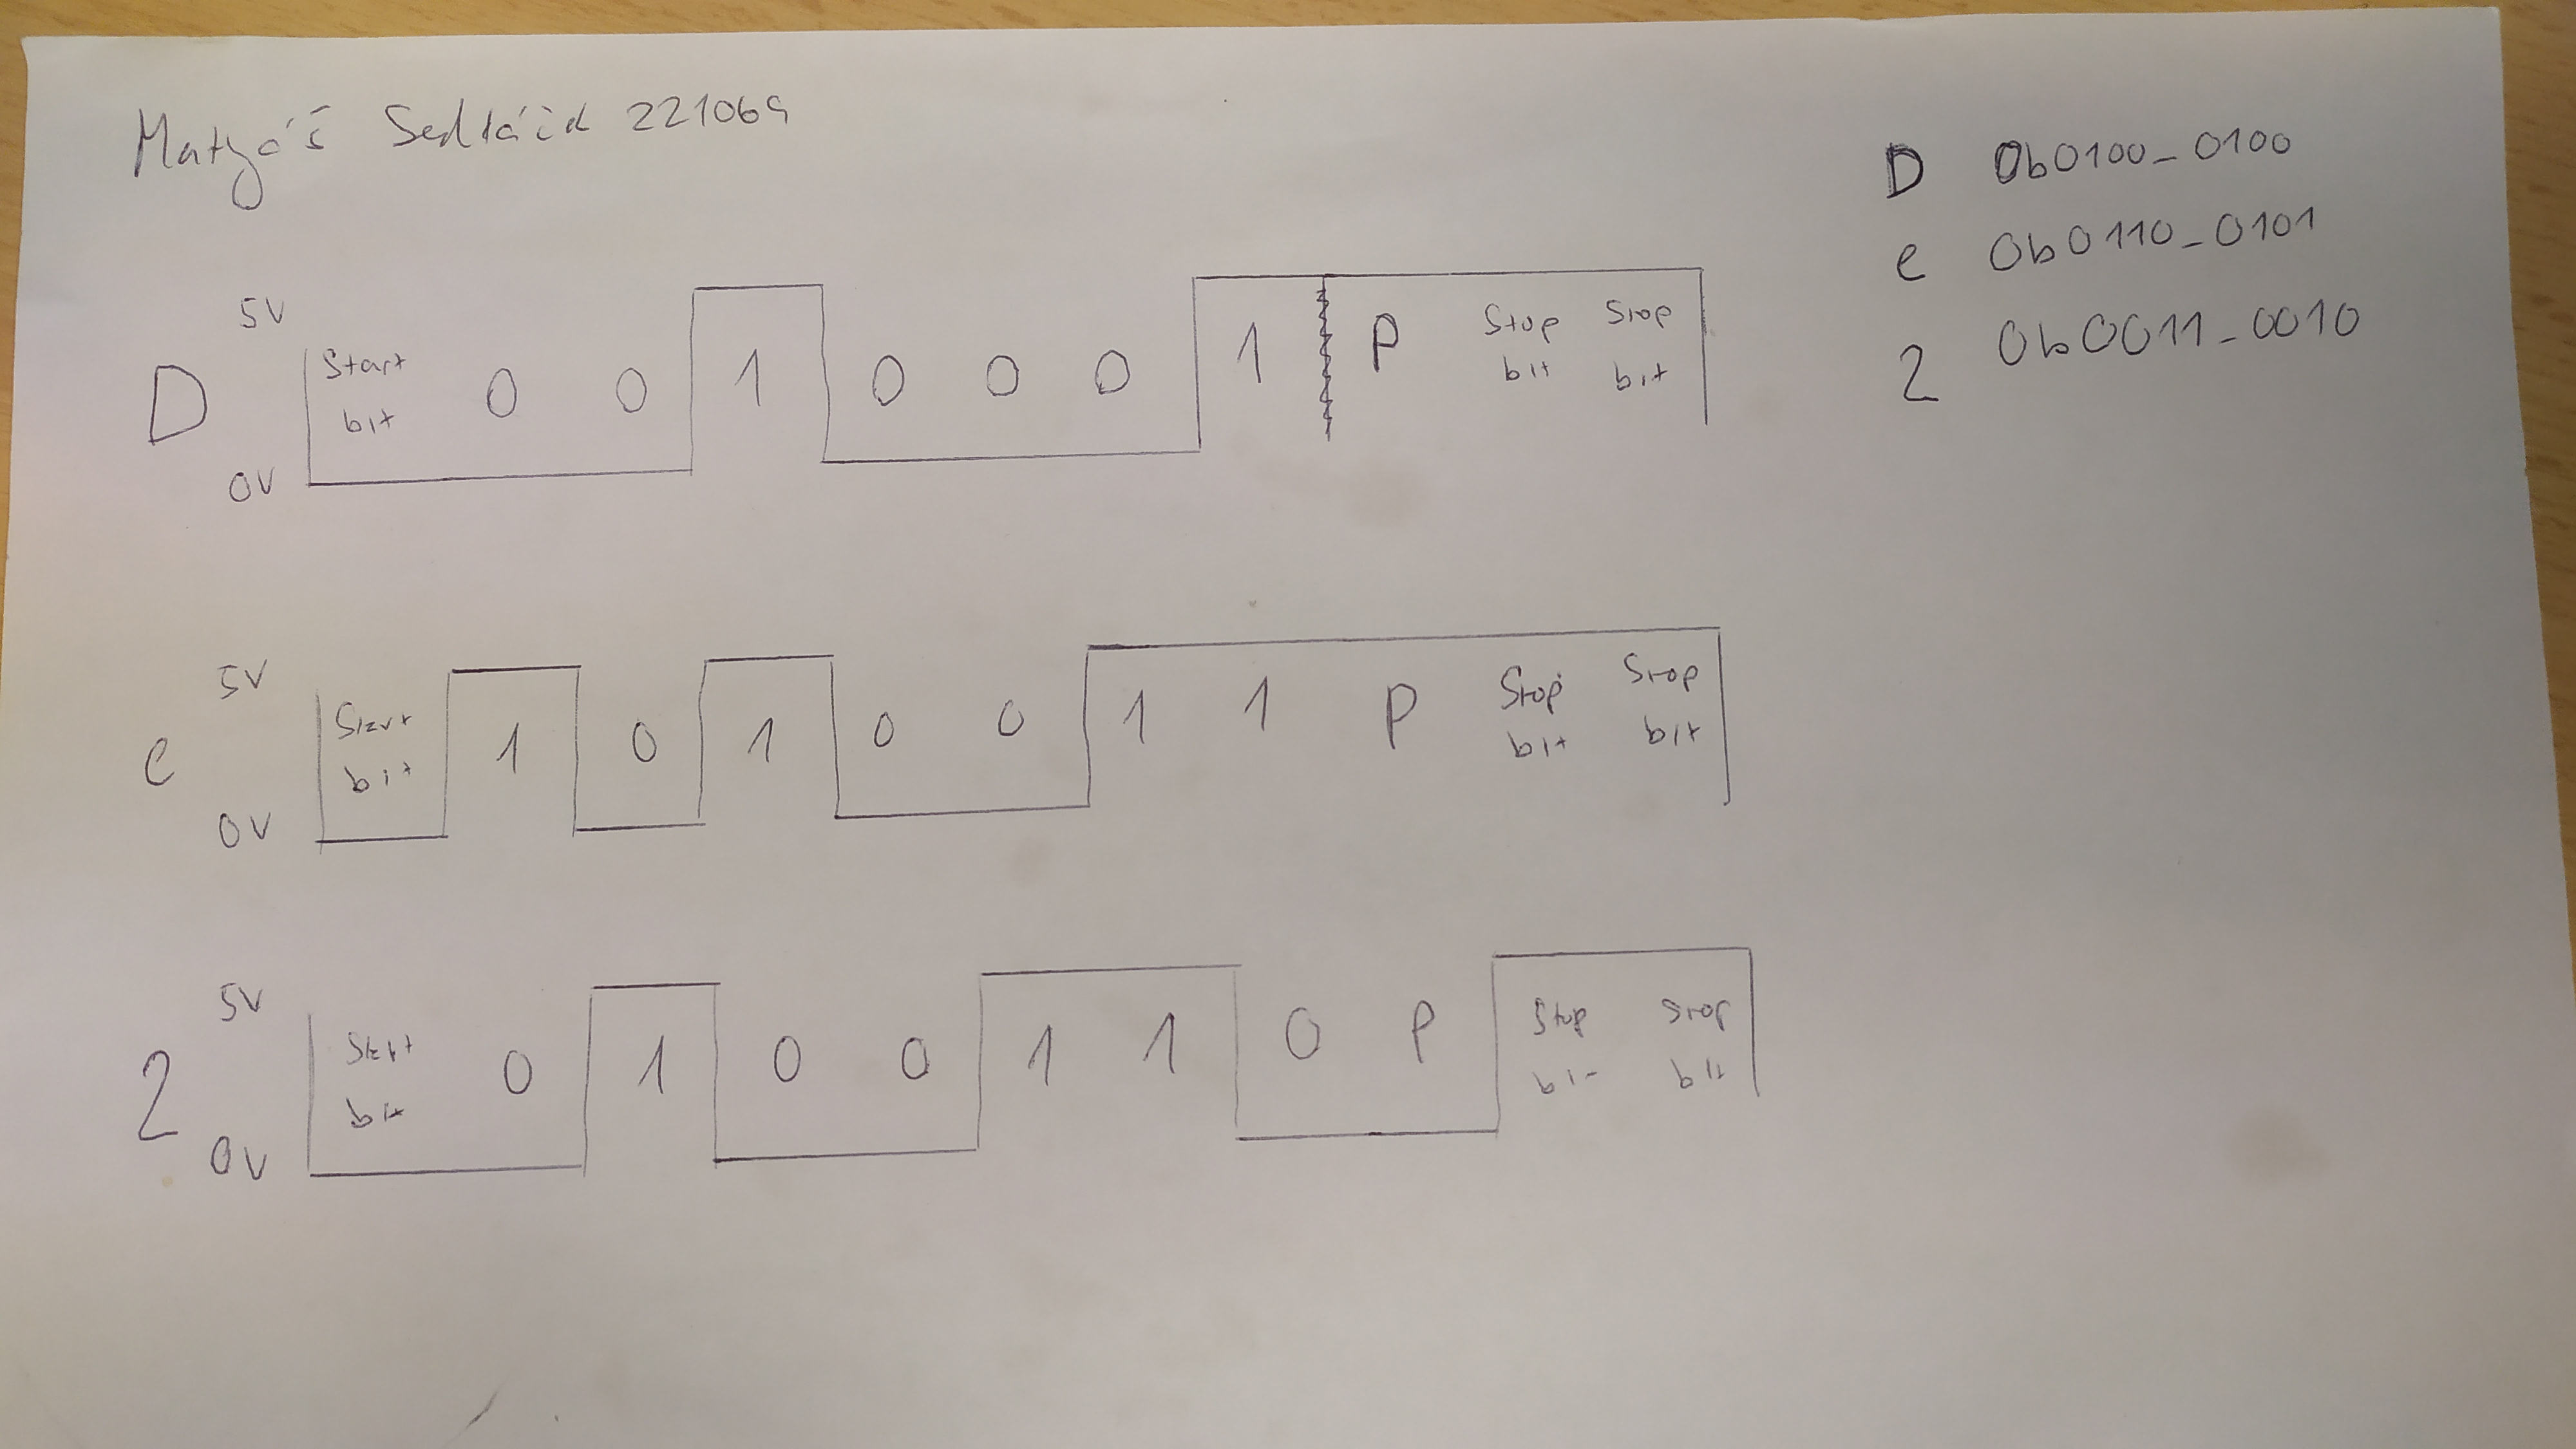 Matyáš Sedláček 221069
D 0b0100_0100
e 0b0110_0101
2 0b0011_0010
5V
D Start bit 0 0 1 0 0 0 1 P Stop bit Stop bit
0V
5V
e Start bit 1 0 1 0 0 1 1 P Stop bit Stop bit
0V
5V
2 Start bit 0 1 0 0 1 1 0 P Stop bit Stop bit
0V